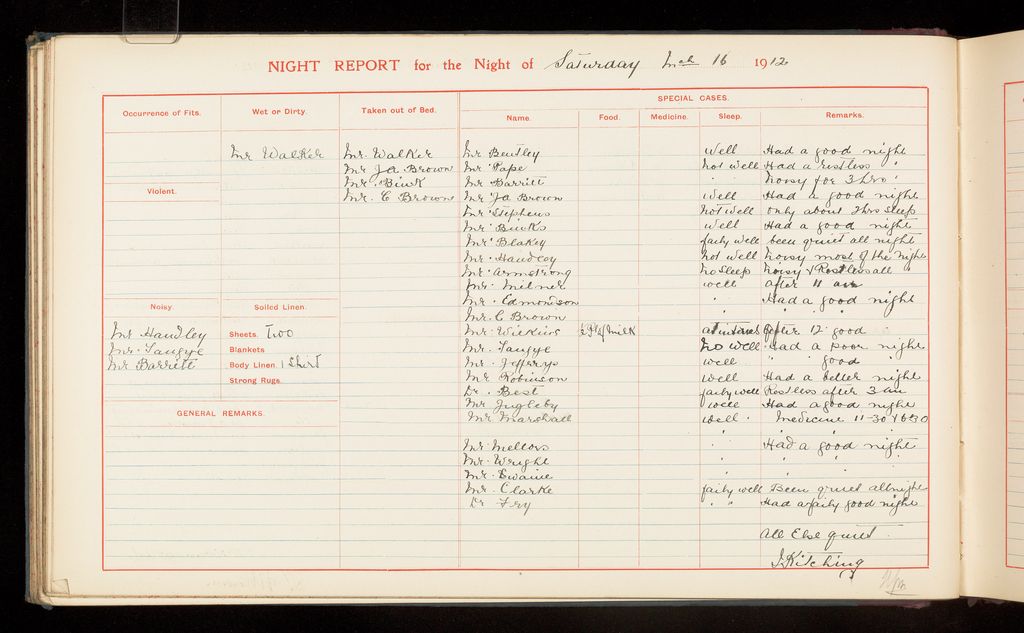 NIGHT REPORT for the Night of Saturday Mch 16 1912
SPECIAL CASES.
Occurrence of Fits. Wet or Dirty. Taken out of Bed. Name. Food. Medicine. Sleep. Remarks.
Mr Walker Mr. Walker Mr Bentley well Had a good night
Mr Ja Brown Mr Pape not well Had a restless "
Mr. Binks Mr Barritt " Noisy for 3 hrs
Violent. Mr. C Brown Mr Ja Brown well Had a good night
Mr Stephens not well only about 2 hrs sleep
Mr Binks well Had a good night
Mr Blakey fairly well been quiet all night
Mr. Handley not well Noisy most of the night
Mr Armstrong No sleep Noisy & Restless all "
Mr. Milner well after 11
Mr. Edmondson " Had a good night
Noisy. Soiled Linen. Mr. C Brown
Mr Handley Sheets. Two Mr. Wickins of milk at intervals after 12 good
Mr. Tangye Blankets Mr. Tangye No well Had a poor night
Mr Barritt Body Linen. 1 Shirt Mr. Jefferys well " " good "
Strong Rugs. Mr Robinson well Had a better night
Dr. Best fairly well Restless after 3 am
GENERAL REMARKS. Mr Ingleby well Had a good night
Mr Marshall well. Medicine 11-30 & 6-30
Mr. Mellors " Had a good night
Mr. Wright " " " "
Mr. Swaine " " " "
Mr. Clarke fairly well Been quiet all night
Dr Fry " " Had a fairly good night
All Else quiet
J. Kitching